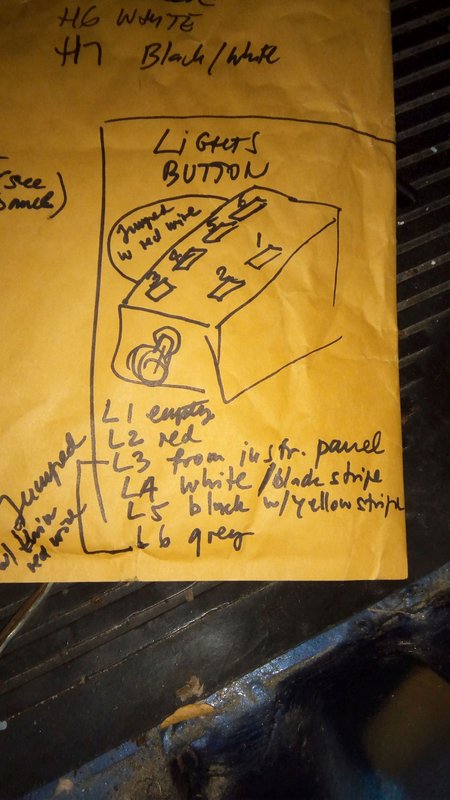 H6 WHITE
H7 Black/White
(see
LIGHTS
BUTTON
Jumped
w red wire
6
5
4
3
1
2
L1 empty
L2 red
L3 from instr. panel
L4 white/black stripe
L5 black w/yellow stripe
L6 grey
Jumped
w/ thin
red wire